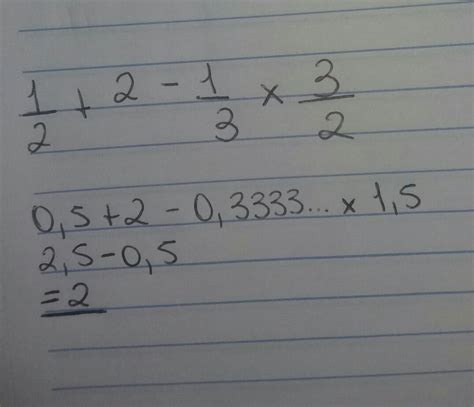 1/2 + 2 - 1/3 × 3/2
0,5 + 2 - 0,3333... × 1,5
2,5 - 0,5
= 2